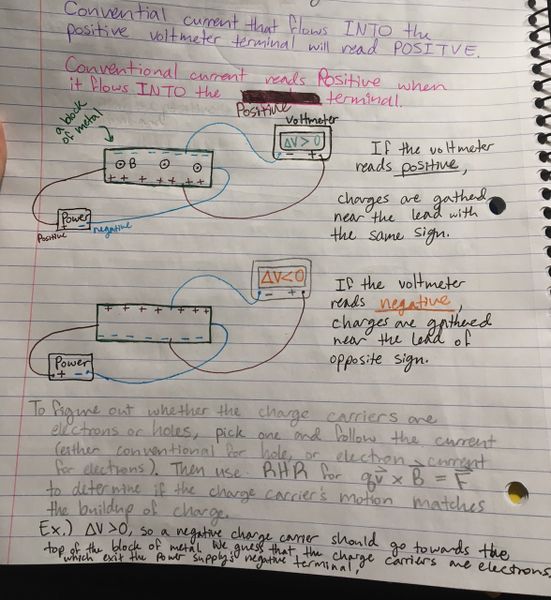 Convential current that flows INTO the
positive voltmeter terminal will read POSITVE.
Conventional current reads Positive when
it flows INTO the Positive terminal.
a block
of metal
voltmeter
ΔV > 0
- +
- - - - - -
⊙B ⊙ ⊙
+ + + + + + +
Power
+ -
Positive
negative
If the voltmeter
reads positive,
charges are gathered
near the lead with
the same sign.
ΔV<0
- +
+ + + + + + +
- - - - - -
Power
+ -
If the voltmeter
reads negative,
charges are gathered
near the lead of
opposite sign.
To figure out whether the charge carriers are
electrons or holes, pick one and follow the current
(either conventional for hole, or electron current
for electrons). Then use RHR for qv⃗ × B⃗ = F⃗
to determine if the charge carrier's motion matches
the buildup of charge.
Ex.) ΔV>0, so a negative charge carrier should go towards the
top of the block of metal. We guess that the charge carriers are electrons
which exit the power supply's negative terminal,